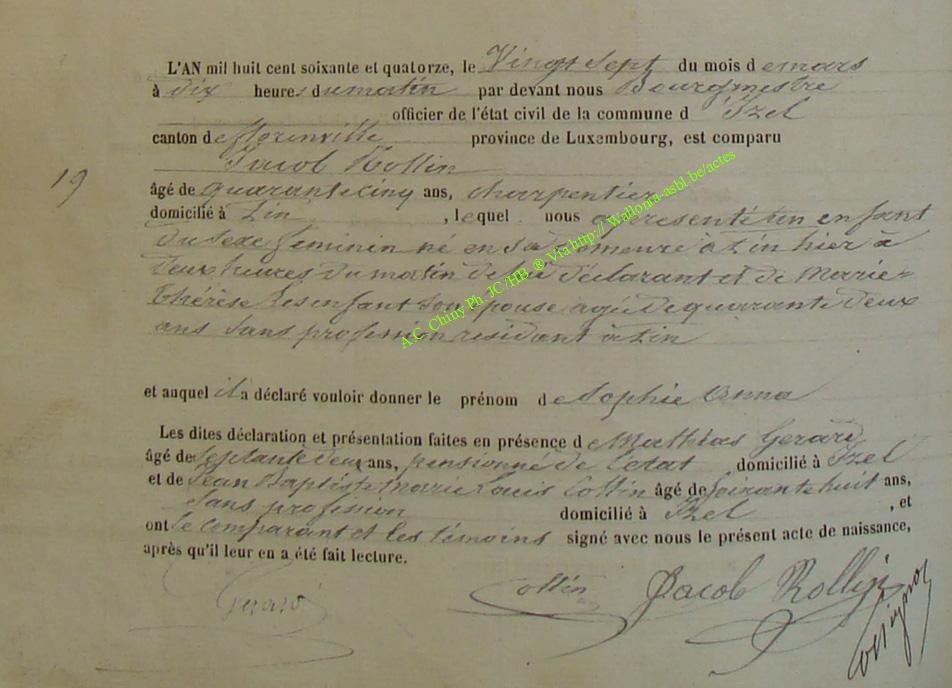 L'AN mil huit cent soixante et quatorze, le Vingt Sept du mois de mars
à dix heures du matin par devant nous Bourgmestre
officier de l'état civil de la commune d'Izel
canton de florenville province de Luxembourg, est comparu
Jacob Rollin
19
âgé de quarante cinq ans, charpentier
domicilié à Pin, lequel nous a présenté un enfant
du sexe feminin né en sa demeure à Pin hier à
deux heures du matin de lui déclarant et de Marie
Thérèse Lesenfant son épouse agée de quarante deux
ans sans profession résidant à Pin
et auquel il a déclaré vouloir donner le prénom de Sophie Anna
Les dites déclaration et présentation faites en présence de Mathias Gerard
âgé de septante deux ans, pensionné de l'etat domicilié à Izel
et de Jean Baptiste Marie Louis Collin âgé de soixante huit ans,
sans profession domicilié à Izel, et
ont le comparant et les témoins signé avec nous le présent acte de naissance,
après qu'il leur en a été fait lecture.
Gerard Collin Jacob Rollin
A.C. Chiny Ph. JC/HB ® Via http://Wallonia-asbl.be/actes